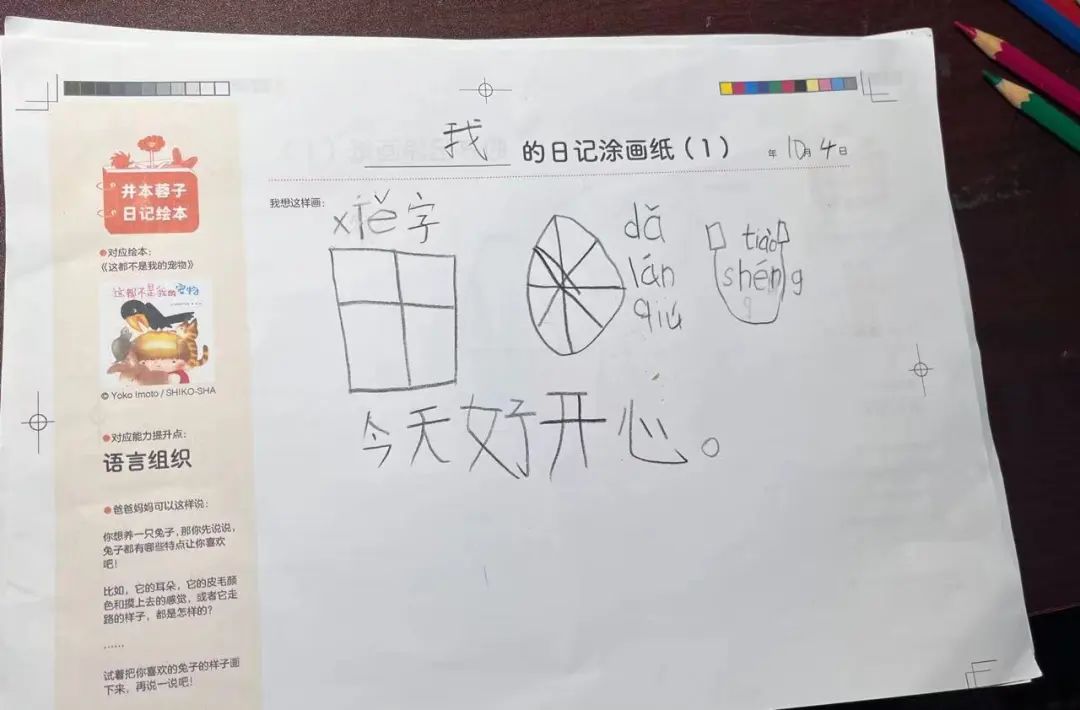 我 的日记涂画纸（1） 年 10月 4日
井本蓉子
日记绘本
●对应绘本：
《这都不是我的宠物》
这都不是我的宠物
© Yoko Imoto / SHIKO-SHA
●对应能力提升点：
语言组织
●爸爸妈妈可以这样说：
你想养一只兔子，那你先说说，
兔子都有哪些特点让你喜欢
吧！
比如，它的耳朵，它的皮毛颜
色和摸上去的感觉，或者它走
路的样子，都是怎样的？
……
试着把你喜欢的兔子的样子画
下来，再说一说吧！
我想这样画：
xiě字
dǎ
lán
qiú
tiào
shéng
今天好开心。